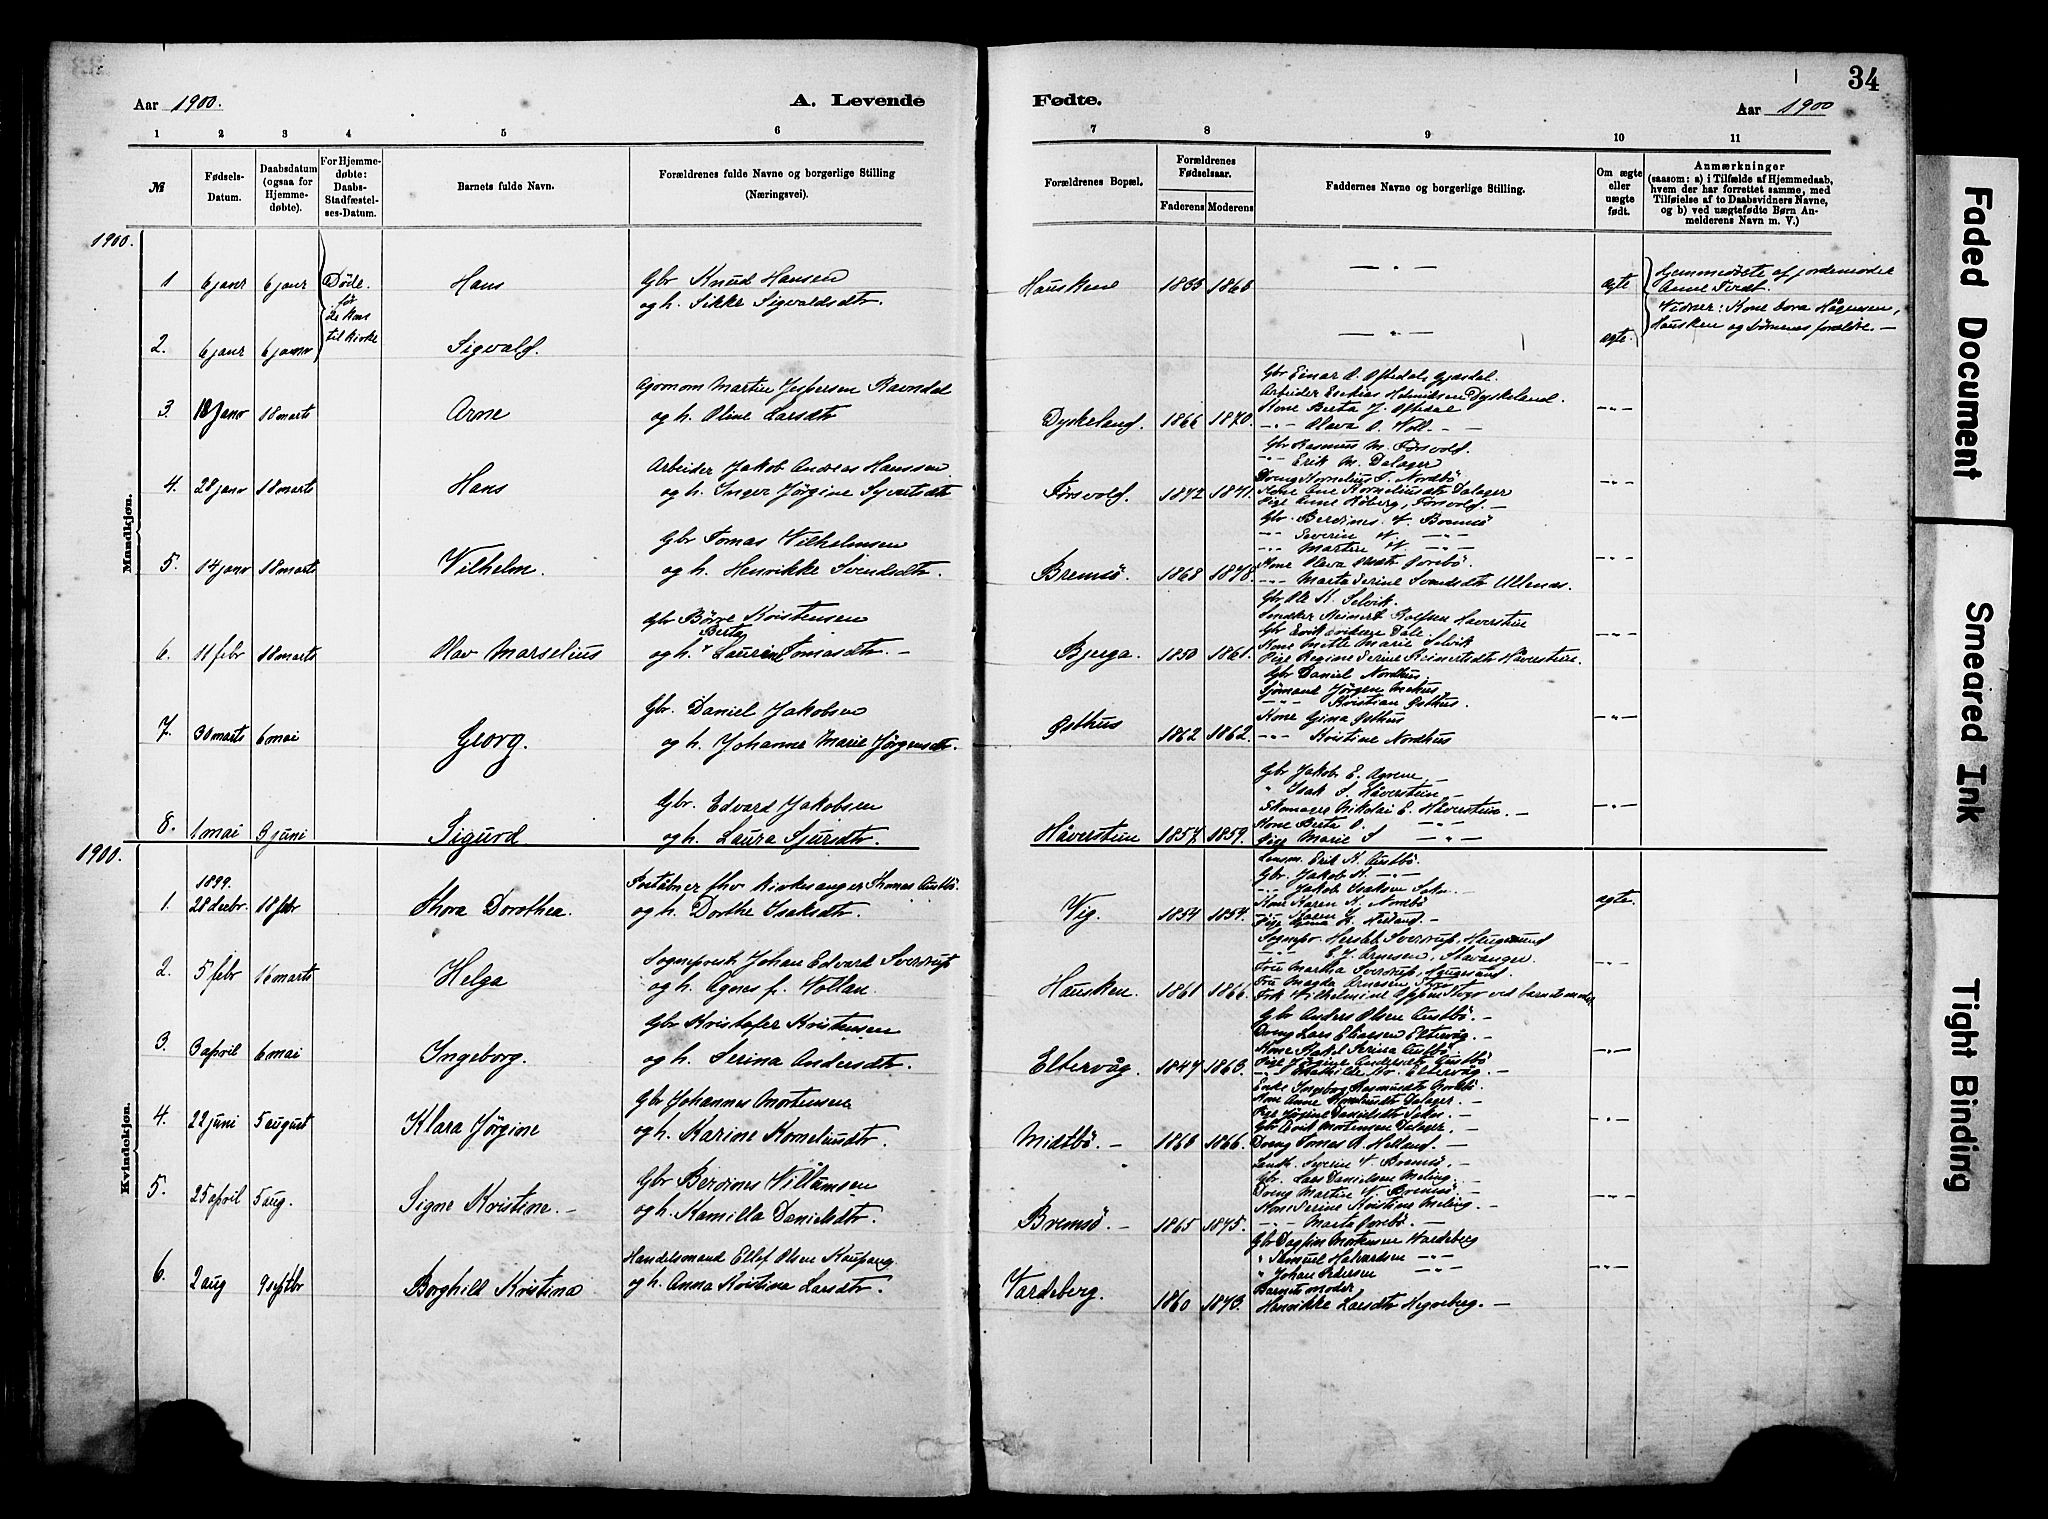 34
Aar 1900.
A. Levende
Fødte.
Aar 1900
1 2 3 4 5 6 7 8 9 10 11
№
Fødsels-Datum.
Daabsdatum (ogsaa for Hjemmedøbte).
For Hjemmedøbte: Daabs-Stadfæstelses-Datum.
Barnets fulde Navn.
Forældrenes fulde Navne og borgerlige Stilling (Næringsvei).
Forældrenes Bopæl.
Forældrenes Fødselsaar.
Faderens Moderens
Faddernes Navne og borgerlige Stilling.
Om ægte eller uægte født.
Anmærkninger (saasom: a) i Tilfælde af Hjemmedaab, hvem der har forrettet samme, med Tilføielse af to Daabsvidners Navne, og b) ved uægtefødte Børn Anmelderens Navn m. V.)
1900.
Mandkjøn.
1 6 janr 6 janr Døde før de kom til kirke Hans
Gbr Knud Hansen
og h. Sikke Sigvaldsdtr.
Hauskene 1855 1865 — " — ægte
Hjemmedøbte af jordemoder
Anne Tvedt.
Vidner: Kone Hågensen,
Hausken og börnenes forældre. —
2. 6 janr 6 janr Sigvald. — " — ægte.
3. 18 janr 18 marts Arne
Agornom Martin Jespersen Ravndal
og h. Oline Larsdtr
Dyskeland. 1866 1870.
Gbr Einar O. Oftedal, Gjæsdal.
Arbeider Henriksen Dyskeland.
Kone Berta J. Oftedal
— " — Olava O. Voll. —
— " —
4. 28 janr 18 marts Hans
Arbeider Jakob Andreas Hanssen
og h. Inger Jørgine Syvertsdtr
Førsvold. 1872 1871.
Gbr Rasmus M. Førsvold.
— " — Erik M. Dalager
Dreng Kornelius T. Nordbö
Kone Ane Korneliusdtr Dalager
Pige Anne Höberg, Førsvold. —
— " —
5. 14 janr 18 marts Vilhelm.
Gbr Tomas Vilhelmsen
og h. Henrikke Svendsdtr.
Bremsö. 1868 1878.
Gbr. Berdines V. Bremsö
— " — Severin V. — " —
— " — Martin V. — " —
Kone Olava Sörebö.
— " — Marta Serine Svendsdtr Ullenæs.
— " —
6. 11 febr 18 marts Olav Marselius
Gbr Börre Kristensen
og h. Berta Laurine Tomasdtr. —
Bjerga. 1850 1861.
Gbr Ole H. Selvik.
Snedker Reinert Rolfsen Håverstein
Gbr Erik Dale
Kone Mette Marie Selvik
Pige Regine Serine Reinertsdtr Håverstein.
— " —
7. 30 marts 6 mai Georg.
Gbr. Daniel Jakobsen
og h. Johanne Marie Jørgensdtr.
Østhus 1862 1862.
Gbr Daniel Nordhus.
Sjömand Jörgen Mehus
— " — Kristian Østhus.
Kone Gina Østhus
— " — Kristine Nordhus
— " —
8. 1 mai 3 juni Sigurd
Gbr. Edvard Jakobsen
og h. Laura Sjursdtr.
Håverstein 1857 1859.
Gbr Jakob E. Agrene —
" Isak S. Håverstein —
Skomager Nikolai E. Håverstein. —
Kone Berta O. — " —
Pige Marie S — " —
— " —
1900.
Kvindekjøn.
1. 1899. 28 decbr. 18 febr Thora Dorothea.
Postabner fhv. kirkesanger Thomas Austbö.
og h. Dorthe Isaksdtr.
Vig. 1854 1854.
Lensm. Erik H. Austbö.
Gbr. Jakob H. — " —
— " — Jakob Isaksen Sokn. —
Kone Karen N. Nordbö
ægte.
2. 5 febr 16 marts Helga
Sogneprest Johan Edvard Sverdrup
og h. Agnes f. Vollan.
Hausken. 1861 1866.
Sognepr. Hersleb Sverdrup, Haugesund
— " — E. J. Arnesen, Stavanger.
Fru Martha Sverdrup, Haugesund.
Fru Magda Arnesen Stvgr
Frk Wilhelmine Oppen Stvgr ved barnets moder
— " —
3. 3 april 6 mai Ingeborg.
Gbr Kristofer Kristensen
og h. Serina Andersdtr.
Eltervåg. 1847 1863.
Gbr Anders Olsen Austbö. —
Dreng Lars Eliassen Eltervåg. —
Kone Rakel Serina Austbö. —
Pige Jörgine Andersdtr Austbö
— " — Mathilde Kr. Eltervåg. —
— " —
4. 22 juni 5 august Klara Jørgine
Gbr Johannes Mortensen
og h. Karine Kornelinsdtr.
Midtbö. — 1863 1866.
Enke Ingeborg Rasmusdtr Nordbö.
Kone Anne Kornelinsdtr Dalager. —
Pige Jörgine Danielsdtr Sokn. —
Gbr Erik Mortensen Dalager. —
Dreng Tomas R. Helland. —
— " —
5. 25 april 5 aug. Signe Kristine. —
Gbr Berdines Villumsen
og h. Kamilla Danielsdtr.
Bremsö. — 1865 1875.
Landh. Severin V. Bremsö. —
Gbr. Lars Danielsen Meling. —
Dreng Martin V. Bremsö. —
Kone Serine Kristine Meling. —
— " — Marta Sörebö. —
— " —
6. 2 aug 9 septbr Borghild Kristina
Handelsmand Ellef Olsen Kaupang
og h. Anna Kristina Larsdtr.
Vardeberg. 1860 1873.
Gbr Dagfin Mortensen Vardeberg
" Samuel Halvardsen — " —
" Johan Pedersen — " —
Barnets moder
Henrikke Larsdtr Hegreberg. —
— " —
Faded Document
Smeared Ink
Tight Binding